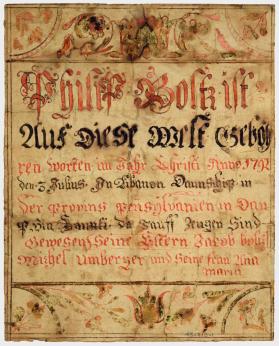 Philip Boltz ist
Auf Diese Welt Geboh
ren worten im Jahr Christi Anno 1792
den 3 Julius In Libanon Daunschip in
Der Provins Pensylvanien in Dau
Phin Zaunti da Tauff Zeugen Sind
Gewesen Seine Eltern Jacob bolz
Michel Umberger und Seine frau Ana
maria